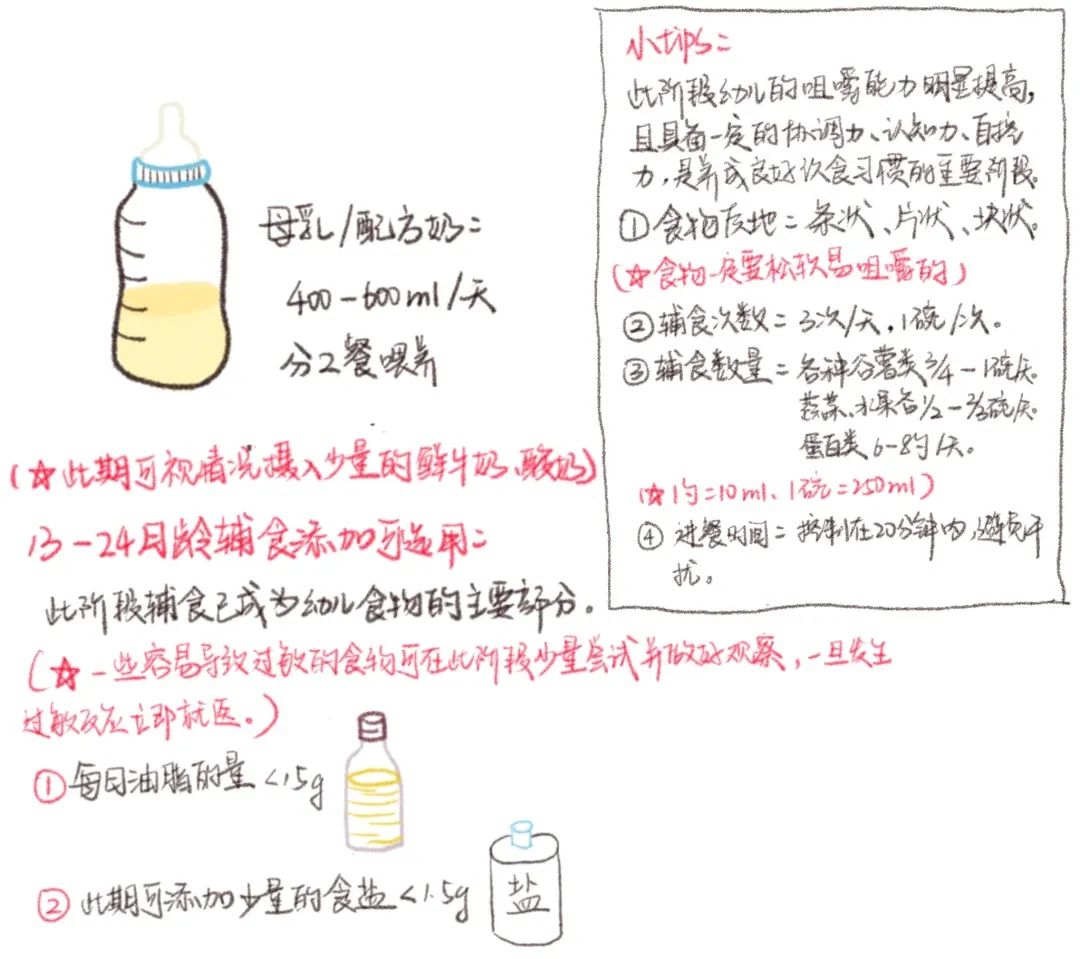 母乳/配方奶:
400-600ml/天
分2餐喂养
(☆此期可视情况摄入少量的鲜牛奶、酸奶)
13-24月龄辅食添加可选用:
此阶段辅食已成为幼儿食物的主要部分。
(☆一些容易导致过敏的食物可在此阶段少量尝试并做好观察,一旦发生
过敏反应立即就医。)
①每日油脂的量<15g
②此期可添加少量的食盐<1.5g
盐
小tips:
此阶段幼儿的咀嚼能力明显提高,
且具备一定的协调力、认知力、自控
力,是养成良好饮食习惯的主要阶段。
①食物质地:条状、片状、块状。
(☆食物一定要松软易咀嚼的)
②辅食次数:3次/天,1碗/次。
③辅食数量:各种谷薯类3/4-1碗/天。
蔬菜、水果各1/2-2/3碗/天。
蛋白类6-8勺/天。
(☆1勺=10ml、1碗=250ml)
④进餐时间:控制在20分钟内,避免干
扰。